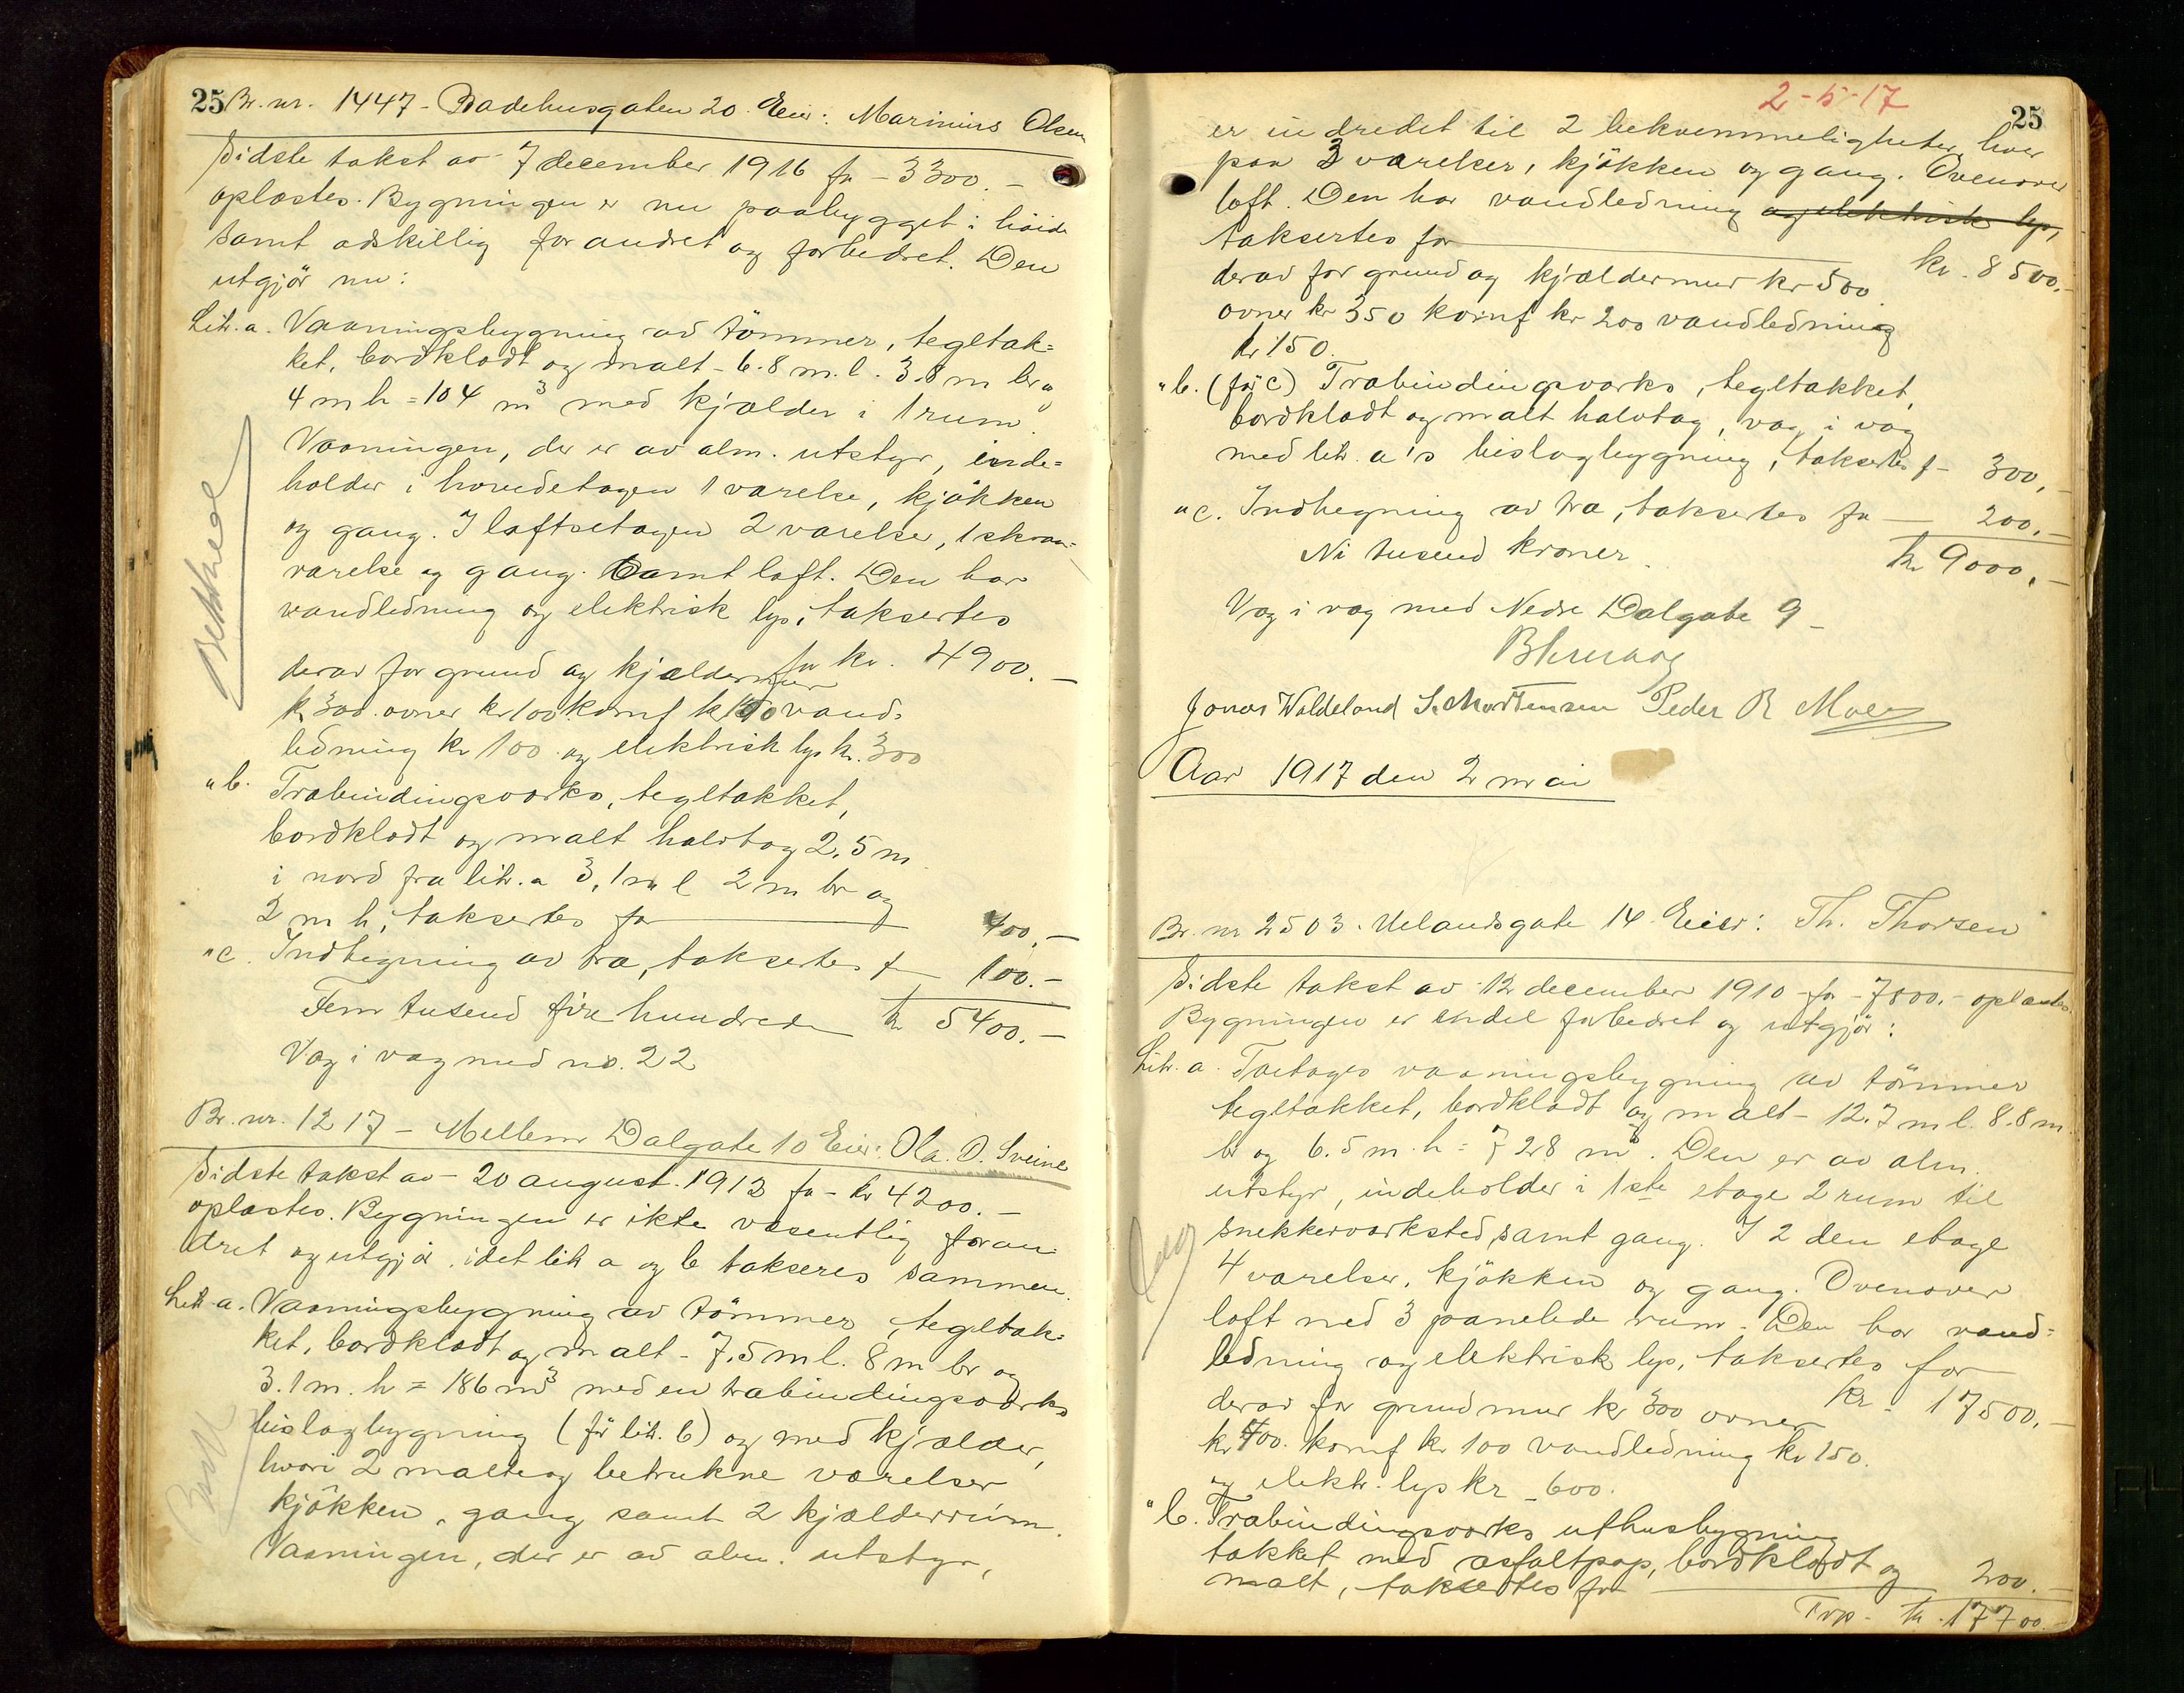 25 Br. nr. 1447 - Badehusgaten 20. Eier: Marinius Olsen
Sidste takst av 7 december 1916 fr - 3300.-
oplæstes. Bygningen er nu paabygget i höide
samt adskillig forandret og forbedret. Den
utgjör nu:
Litr. a. Vaaningsbygning av tömmer, tegltak=
ket, bordklædt og malt - 6.8 m. l. 3.8 m br og
4 m h = 104 m³ med kjælder i 1 rum.
Vaaningen, der er av alm. utstyr, inde=
holder i hovedetagen 1 værelse, kjökken
og gang. I loftsetagen 2 værelse, 1 skraa=
værelse og gang. Samt loft. Den har
vandledning og elektrisk lys, taksertes
for kr. 4900.-
derav for grund og kjældermur
kr 300. ovner kr 100 komf kr 100 vand=
ledning kr 100 og elektrisk lys kr. 300
" b. Træbindingsværks, tegltakket,
bordklædt og malt halvtag 2,5 m
i nord fra litr. a 3,1 m l 2 m br og
2 m h, taksertes for 400.-
" c. Indhegning av træ, taksertes f 100.-
Fem tusend fire hundrede kr 5400.-
Væg i væg med no. 22
Bekhuset
Br. nr. 1217 - Mellem Dalgate 10 Eier: Ola. O. Sveine
Sidste takst av - 20 august. 1913 fr - kr 4200.-
oplæstes. Bygningen er ikke væsentlig foran=
dret og utgjör, idet litr a og b takseres sammen.
Litr. a. Vaaningsbygning av tömmer, tegltak=
ket, bordklædt og malt - 7.5 m l. 8 m br og
3.1 m. h = 186 m³ med en træbindingsværks
bislagbygning (för litr. b) og med kjælder,
hvori 2 malte og betrukne værelser
kjökken, gang samt 2 kjælderrum.
Vaaningen, der er av alm. utstyr,
2-5-17
25
er indredet til 2 bekvemmeligheter, hver
paa 3 værelser, kjökken og gang. Ovenover
loft. Den har vandledning og elektrisk lys,
taksertes for kr. 8500.-
derav for grund og kjældermur kr 500.
ovner kr 350 komf kr 200 vandledning
kr 150.
" b. (för c) Træbindingsværks, tegltakket,
bordklædt og malt halvtag, væg i væg
med litr. a's bislagbygning, taksertes f - 300.-
" c. Indhegning av træ, taksertes fr 200.-
Ni tusend kroner. kr 9000.-
Væg i væg med Nedre Dalgate 9 -
Jonas Waldeland S. Mortensen Peder R Moe
Aar 1917 den 2 mai
Br. nr 2503. Uelandsgate 14 Eier: Th. Thorsen
Sidste takst av 12 december 1910 - fr - 7800.- oplæstes.
Bygningen er endel forbedret og utgjör:
Litr. a. Toetages vaaningsbygning av tömmer
tegltakket, bordklædt og malt - 12.7 m l. 8.8 m.
br og 6.5 m. h = 728 m³. Den er av alm.
utstyr, indeholder i 1ste etage 2 rum til
snekkerværksted, samt gang. I 2den etage
4 værelser, kjökken og gang. Ovenover
loft med 3 panelede rum. Den har vand=
ledning og elektrisk lys, taksertes for
kr. 17500.-
derav for grundmur kr 300 ovner
kr 400. komf kr 100 vandledning kr 150.
og elektr. lys kr - 600.
" b. Træbindingsværks uthusbygning
takket med asfaltpap, bordklædt og
malt, taksertes for 200.-
Trp. kr. 17700.